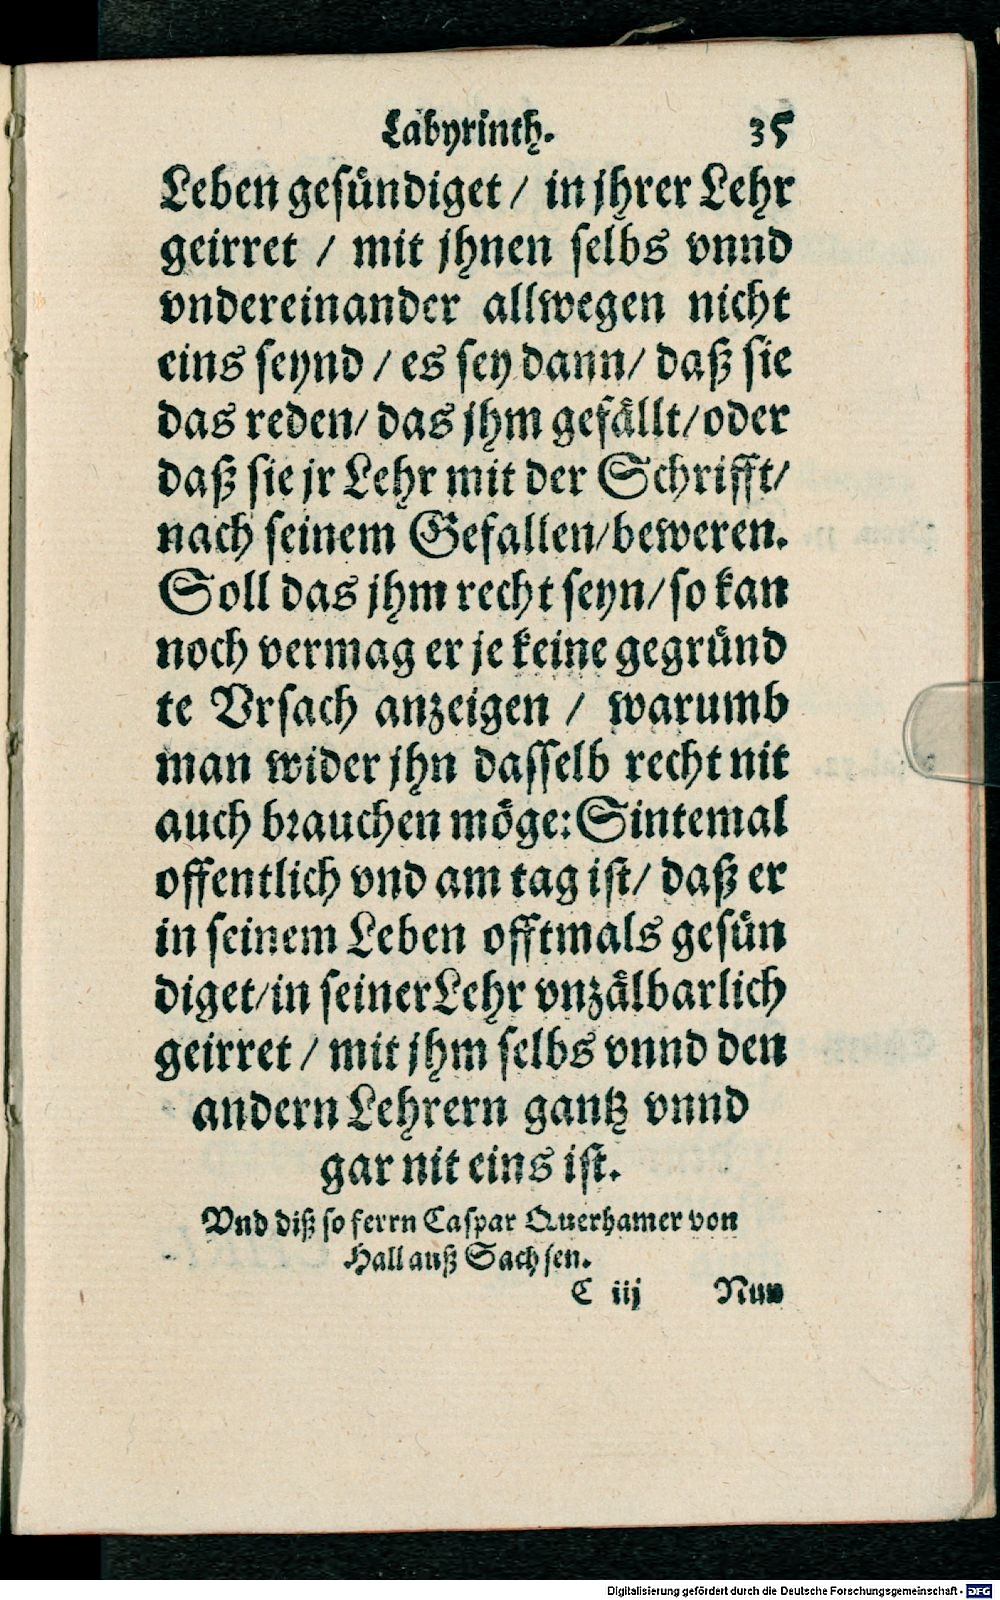 Labyrinth. 35
Leben gesündiget / in jhrer Lehr
geirret / mit jhnen selbs vnnd
vndereinander allwegen nicht
eins seynd / es sey dann / daß sie
das reden / das jhm gefällt / oder
daß sie jr Lehr mit der Schrifft /
nach seinem Gefallen / beweren.
Soll das jhm recht seyn / so kan
noch vermag er je keine gegründ
te Vrsach anzeigen / warumb
man wider jhn dasselb recht nit
auch brauchen möge: Sintemal
offentlich vnd am tag ist / daß er
in seinem Leben offtmals gesün
diget / in seiner Lehr vnzälbarlich
geirret / mit jhm selbs vnnd den
andern Lehrern gantz vnnd
gar nit eins ist.
Vnd diß so ferrn Caspar Querhamer von
Hall auß Sachsen.
C iij Nun
Digitalisierung gefördert durch die Deutsche Forschungsgemeinschaft - DFG